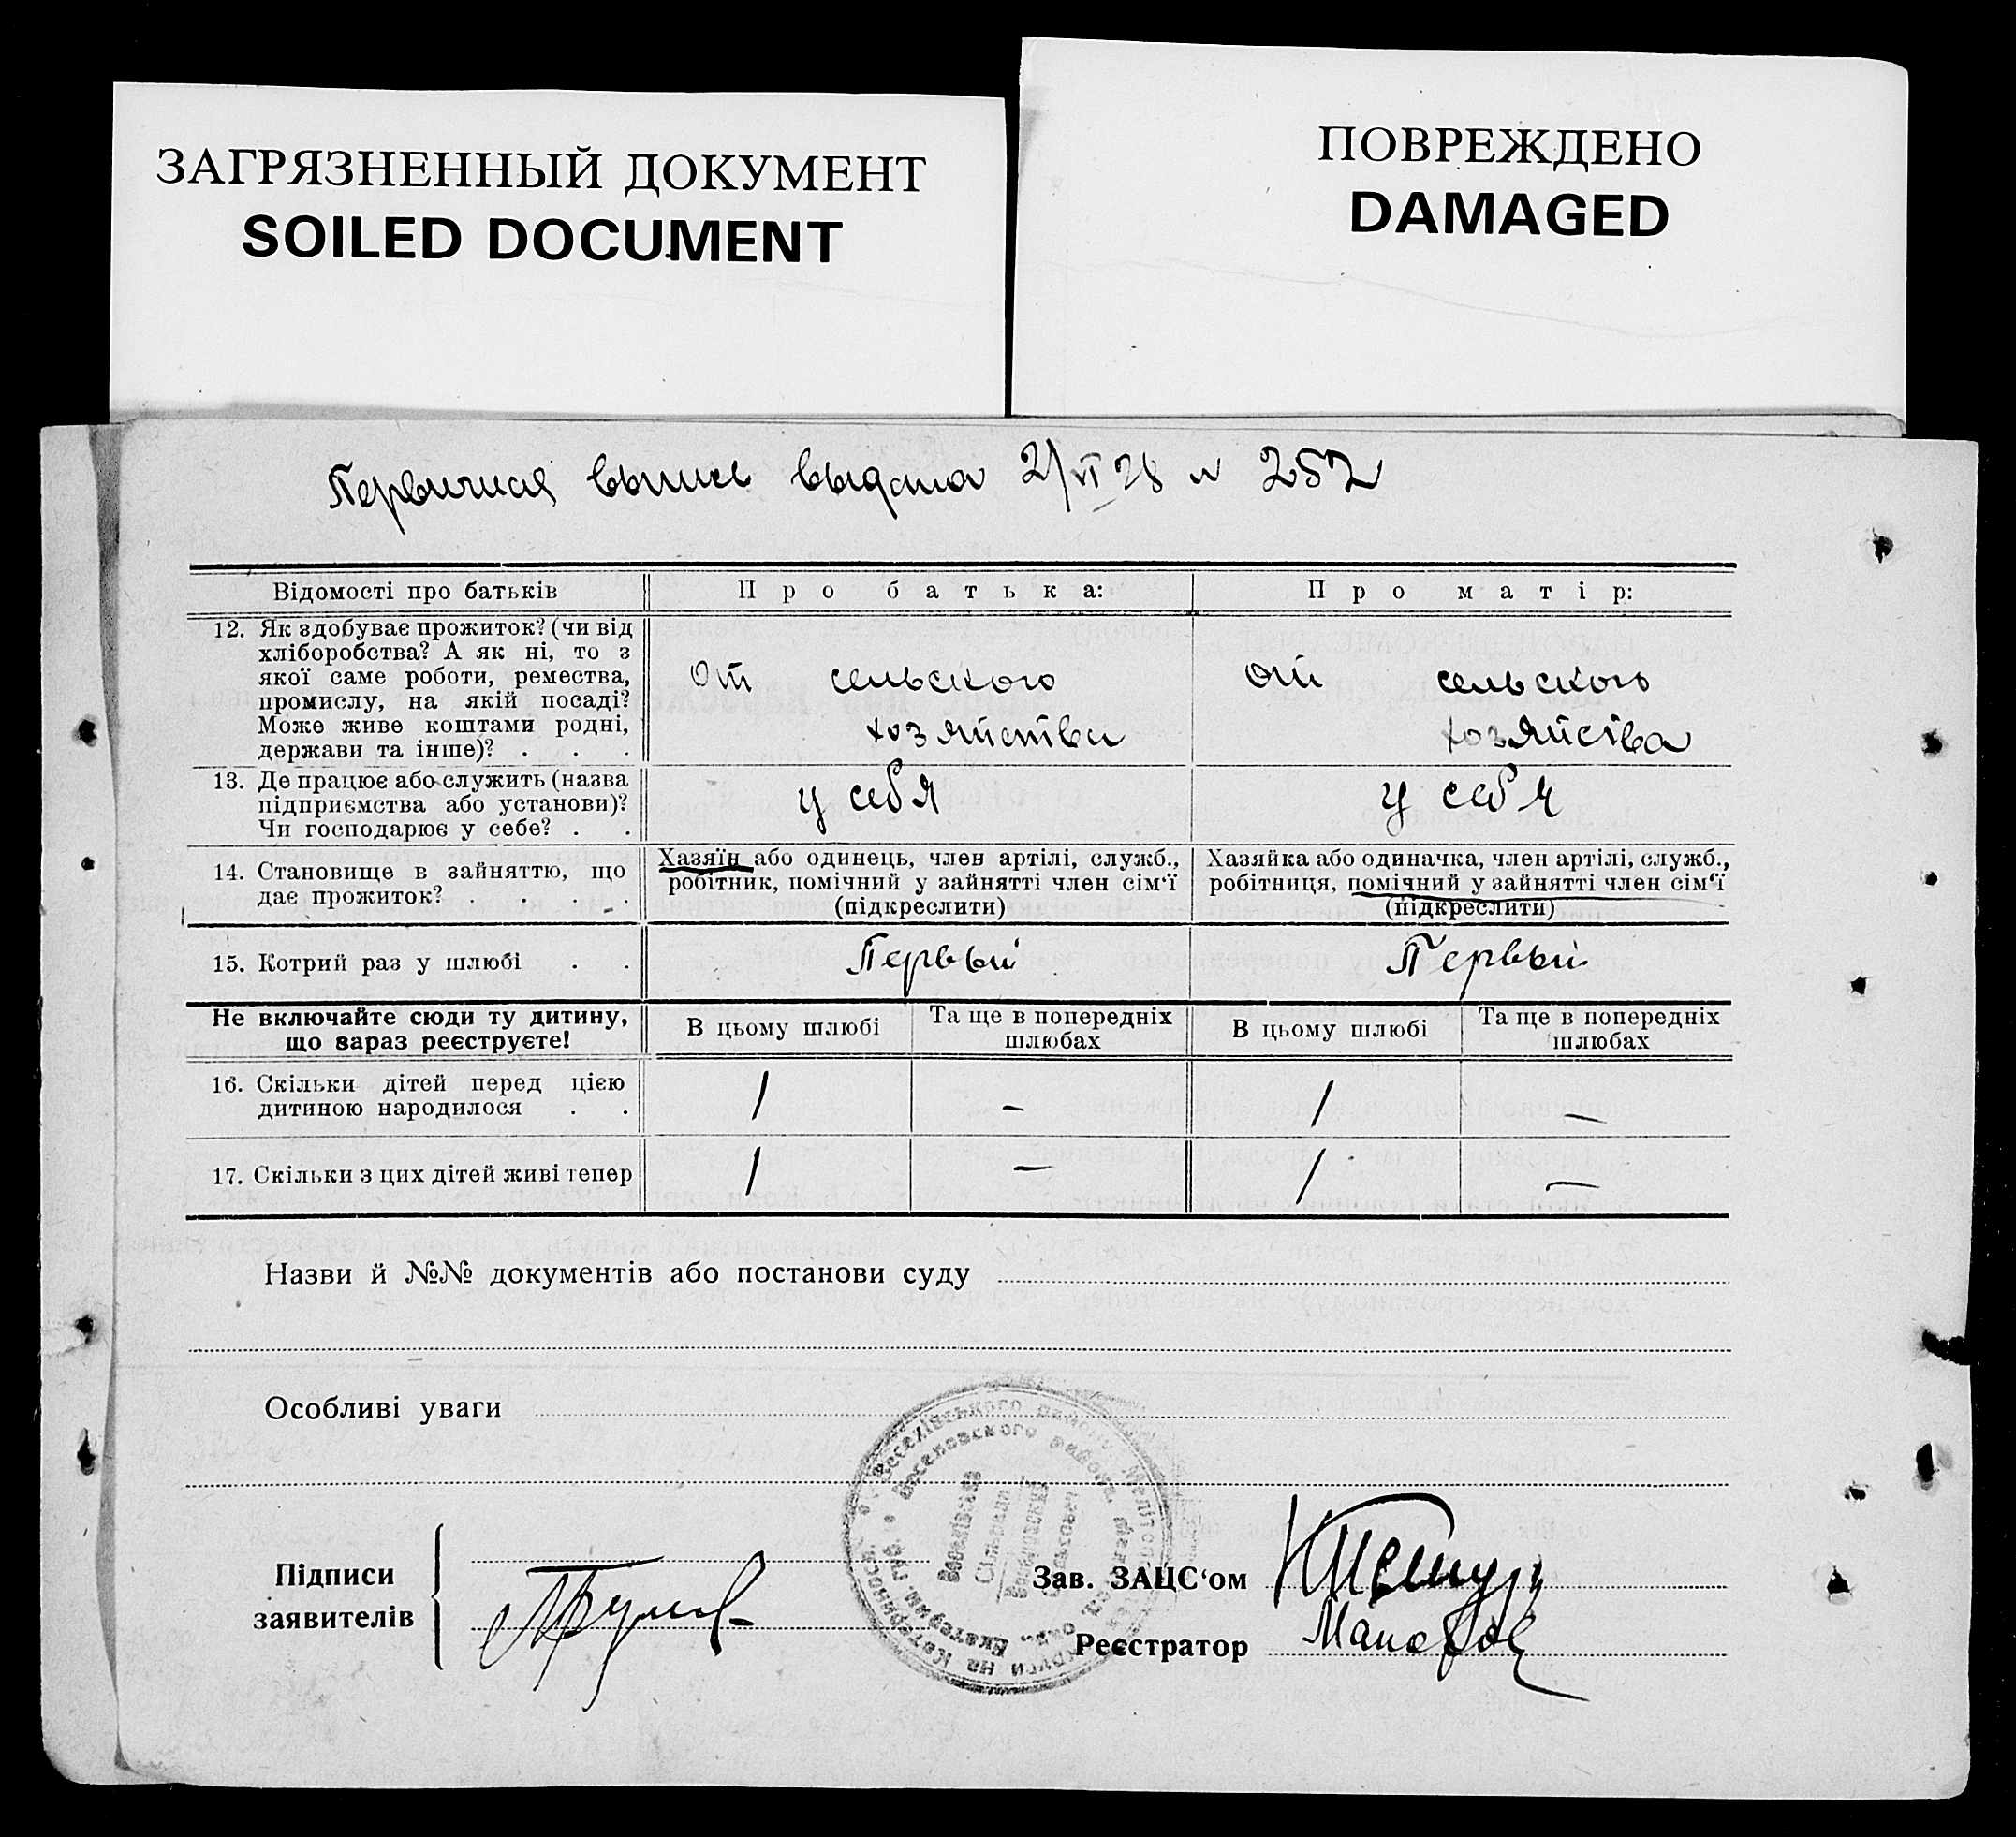 ЗАГРЯЗНЕННЫЙ ДОКУМЕНТ
SOILED DOCUMENT
ПОВРЕЖДЕНО
DAMAGED
Первичная выпись выдана 2/VI 28 N 252
Відомості про батьків
Про батька:
Про матір:
12. Як здобуває прожиток? (чи від
хліборобства? А як ні, то з
якої саме роботи, ремества,
промислу, на якій посаді?
Може живе коштами родні,
держави та інше)? . . .
От сельского
хозяйства
От сельского
хозяйства
13. Де працює або служить (назва
підприємства або установи)?
Чи господарює у себе? . .
у себя
у себя
14. Становище в зайняттю, що
дає прожиток? . . . .
Хазяїн або одинець, член артілі, служб.,
робітник, помічний у зайнятті член сім‘ї
(підкреслити)
Хазяйка або одиначка, член артілі, служб.,
робітниця, помічний у зайнятті член сім‘ї
(підкреслити)
15. Котрий раз у шлюбі . .
Первый
Первый
Не включайте сюди ту дитину,
що зараз реєструєте!
В цьому шлюбі
Та ще в попередніх
шлюбах
В цьому шлюбі
Та ще в попередніх
шлюбах
16. Скільки дітей перед цією
дитиною народилося . .
1
–
1
–
17. Скільки з цих дітей живі тепер
1
–
1
–
Назви й №№ документів або постанови суду
Особливі уваги
Веселівського району
Веселовского района
Підписи
заявителів
Зав. ЗАЦС‘ом
Реєстратор